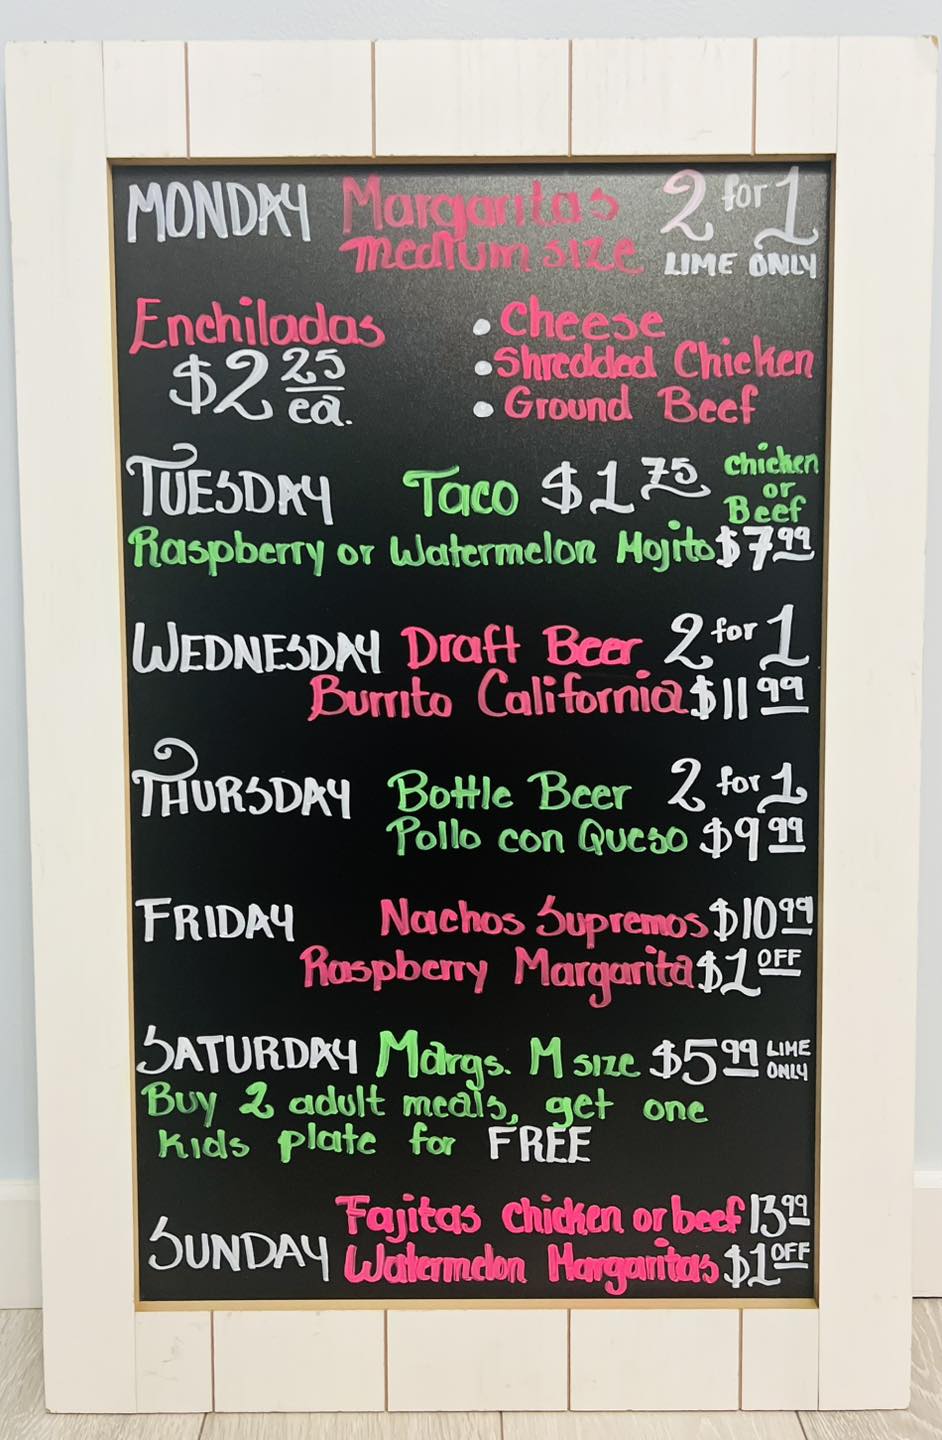 MONDAY Margaritas 2 for 1
medium size LIME ONLY
Enchiladas • Cheese
$2 25 ea. • Shredded Chicken
• Ground Beef
TUESDAY Taco $1 75 chicken or Beef
Raspberry or Watermelon Mojito $7 99
WEDNESDAY Draft Beer 2 for 1
Burrito California $11 99
THURSDAY Bottle Beer 2 for 1
Pollo con Queso $9 99
FRIDAY Nachos Supremos $10 99
Raspberry Margarita $1 OFF
SATURDAY Margs. M size $5 99 LIME ONLY
Buy 2 adult meals, get one
kids plate for FREE
Fajitas chicken or beef 13 99
SUNDAY Watermelon Margaritas $1 OFF